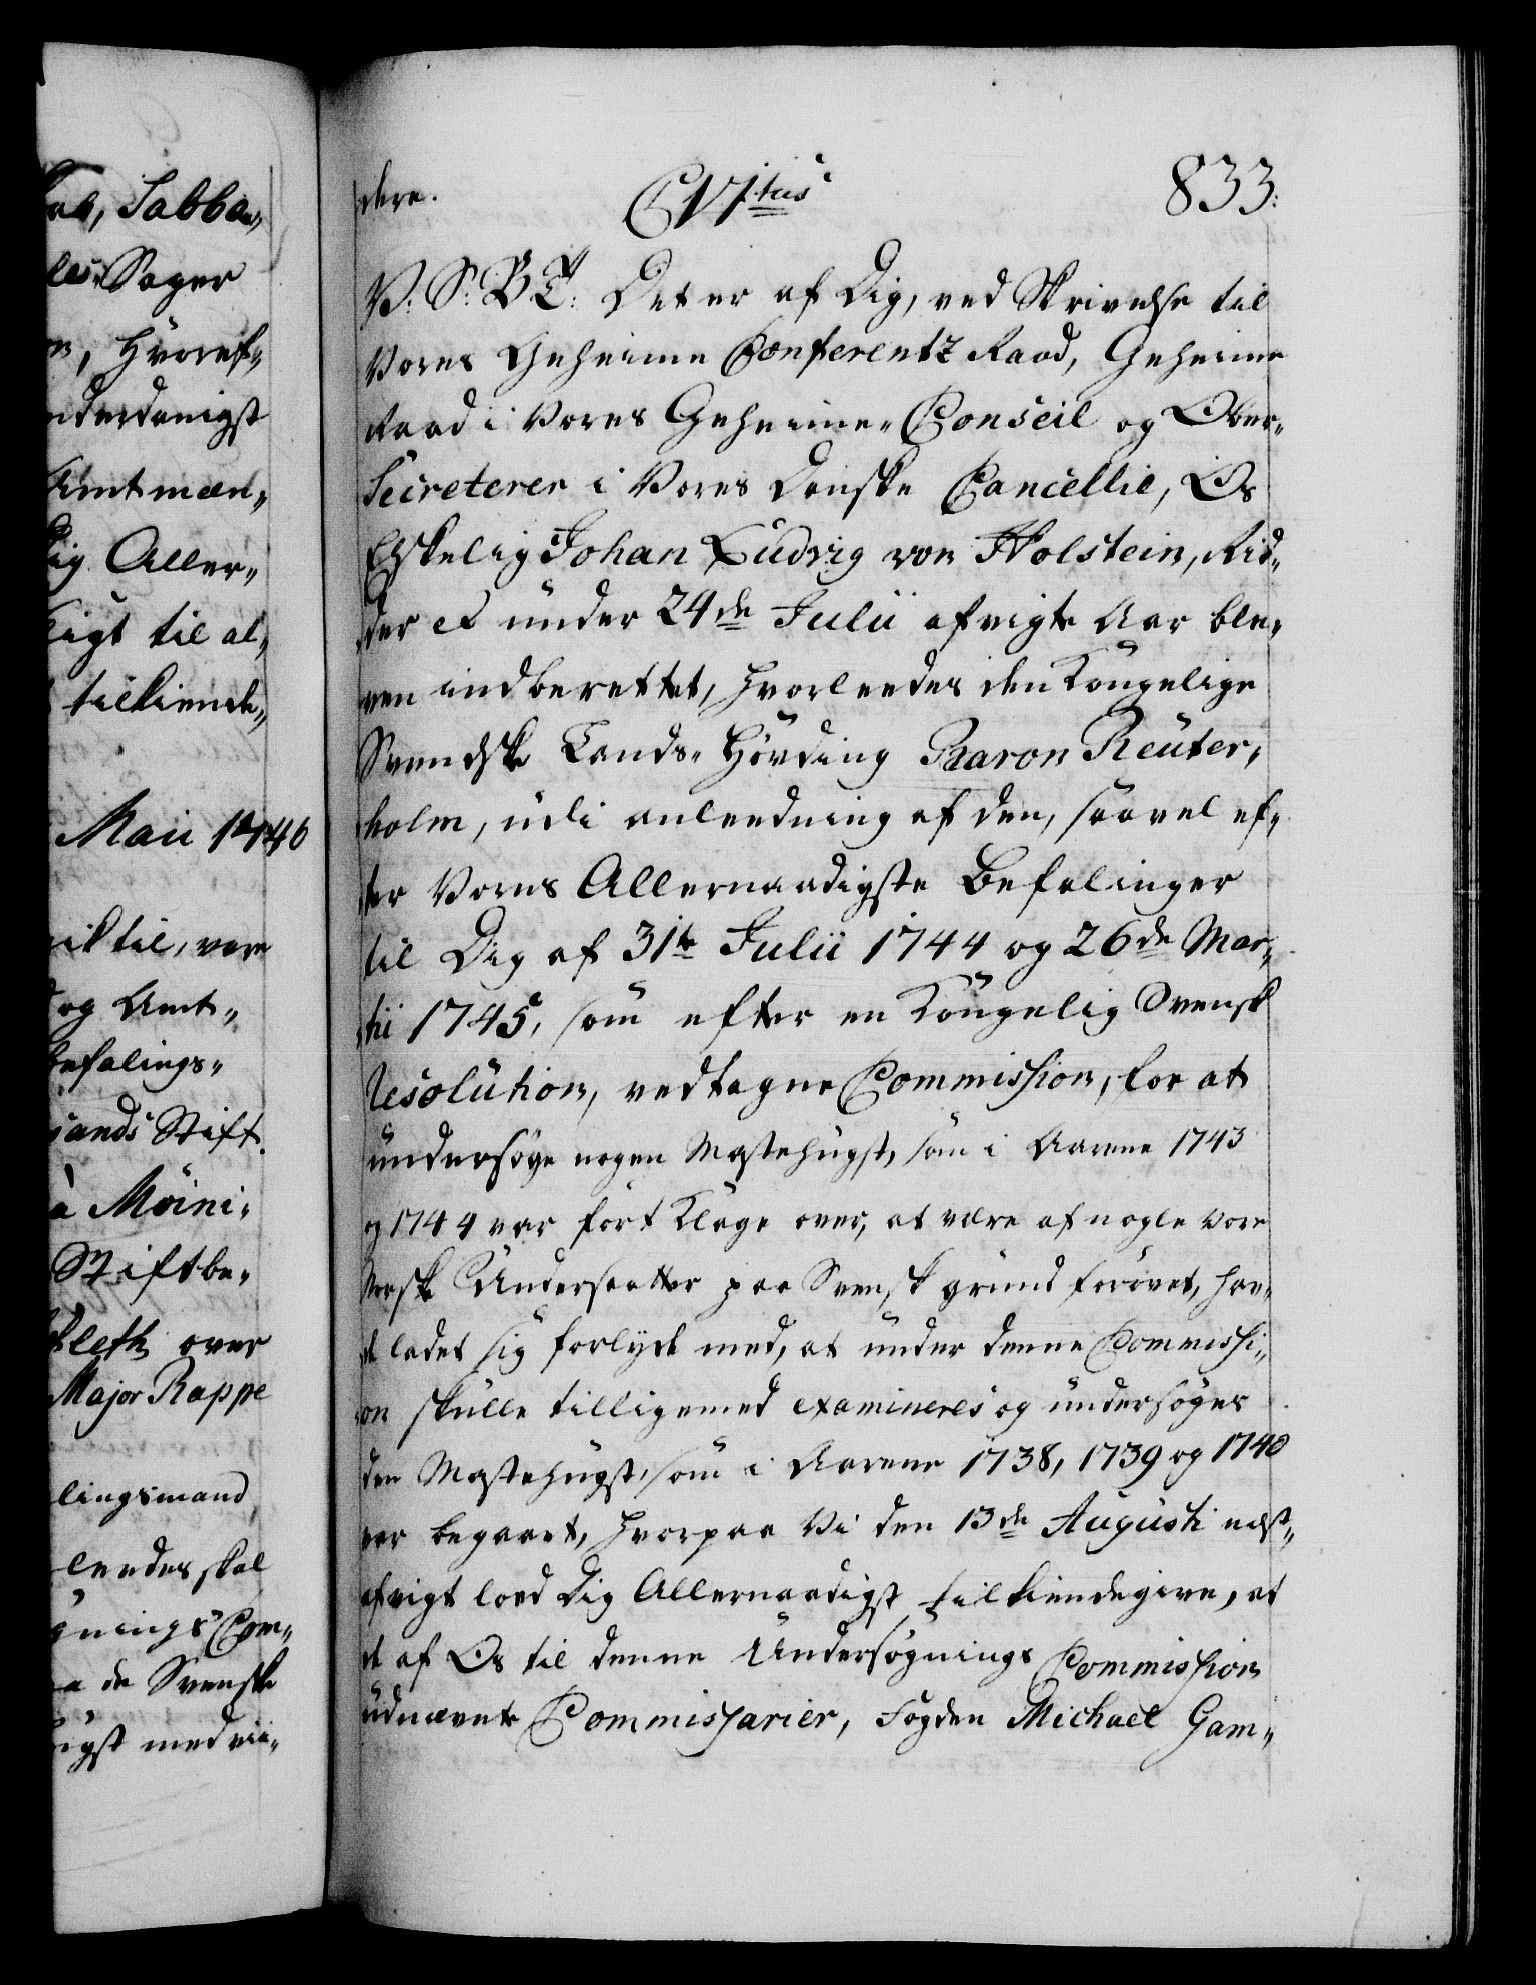 ab, Sabba„
les Sager
, hvoref„
nderdanigst
Amtmæn„
ig Aller„
ligt til al„
tilkiende„
Maii 1746
ik til, være
og Amt„
befalings„
sands Stift
a Möini„
Stiftbe„
fleth over
Major Rappe
lingsmand
ledes skal
gnings Com„
a de Svenske
ugst med vii„
dere. CVItus 833:
V: S: B T: Det er af Dig, ved Skrivelse til
Vores Geheime Conferentz Raad, Geheime
Raad i Vores Geheime„Conseil og Ober„
Secreterer i Vores Danske Cancellie, Os
Elskelig Johan Ludvig von Holstein, Rid„
der et under 24de Julii afvigte Aar ble„
ven indberettet, hvorleedes den Kongelige
Svendske Lands„Hövding Baron Reuter„
holm, udi anleedning af den, saavel ef„
ter Vores Allernaadigste Befalinger
til Dig af 31te Julii 1744 og 26de Mar„
tii 1745, som efter en Kongelig Svensk
Resolution, vedtagne Commission, for at
undersöge nogen Mastehugst, som i Aarene 1743
og 1744 var fört Klage over, at være af nogle vore
Norske Undersaatter paa Svensk grund forövet, hav„
de ladet sig forlyde med, at under denne Commissi„
on skulle tilligemed examineres og undersöges
den Mastehugst, som i Aarene 1738, 1739 og 1740
var begaaet, hvorpaa Vi den 13de Augusti næst„
afvigt loed Dig Allernaadigst tilkiendegive, at
de af Os til denne Undersögnings Commission
udnævnte Commissarier, Fogden Michael Gam„